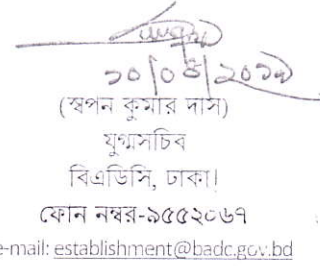 (স্বপন কুমার দাস)
যুগ্মসচিব
বিএডিসি, ঢাকা।
ফোন নম্বর-৯৫৫২০৬৭
e-mail: establishment@badc.gov.bd